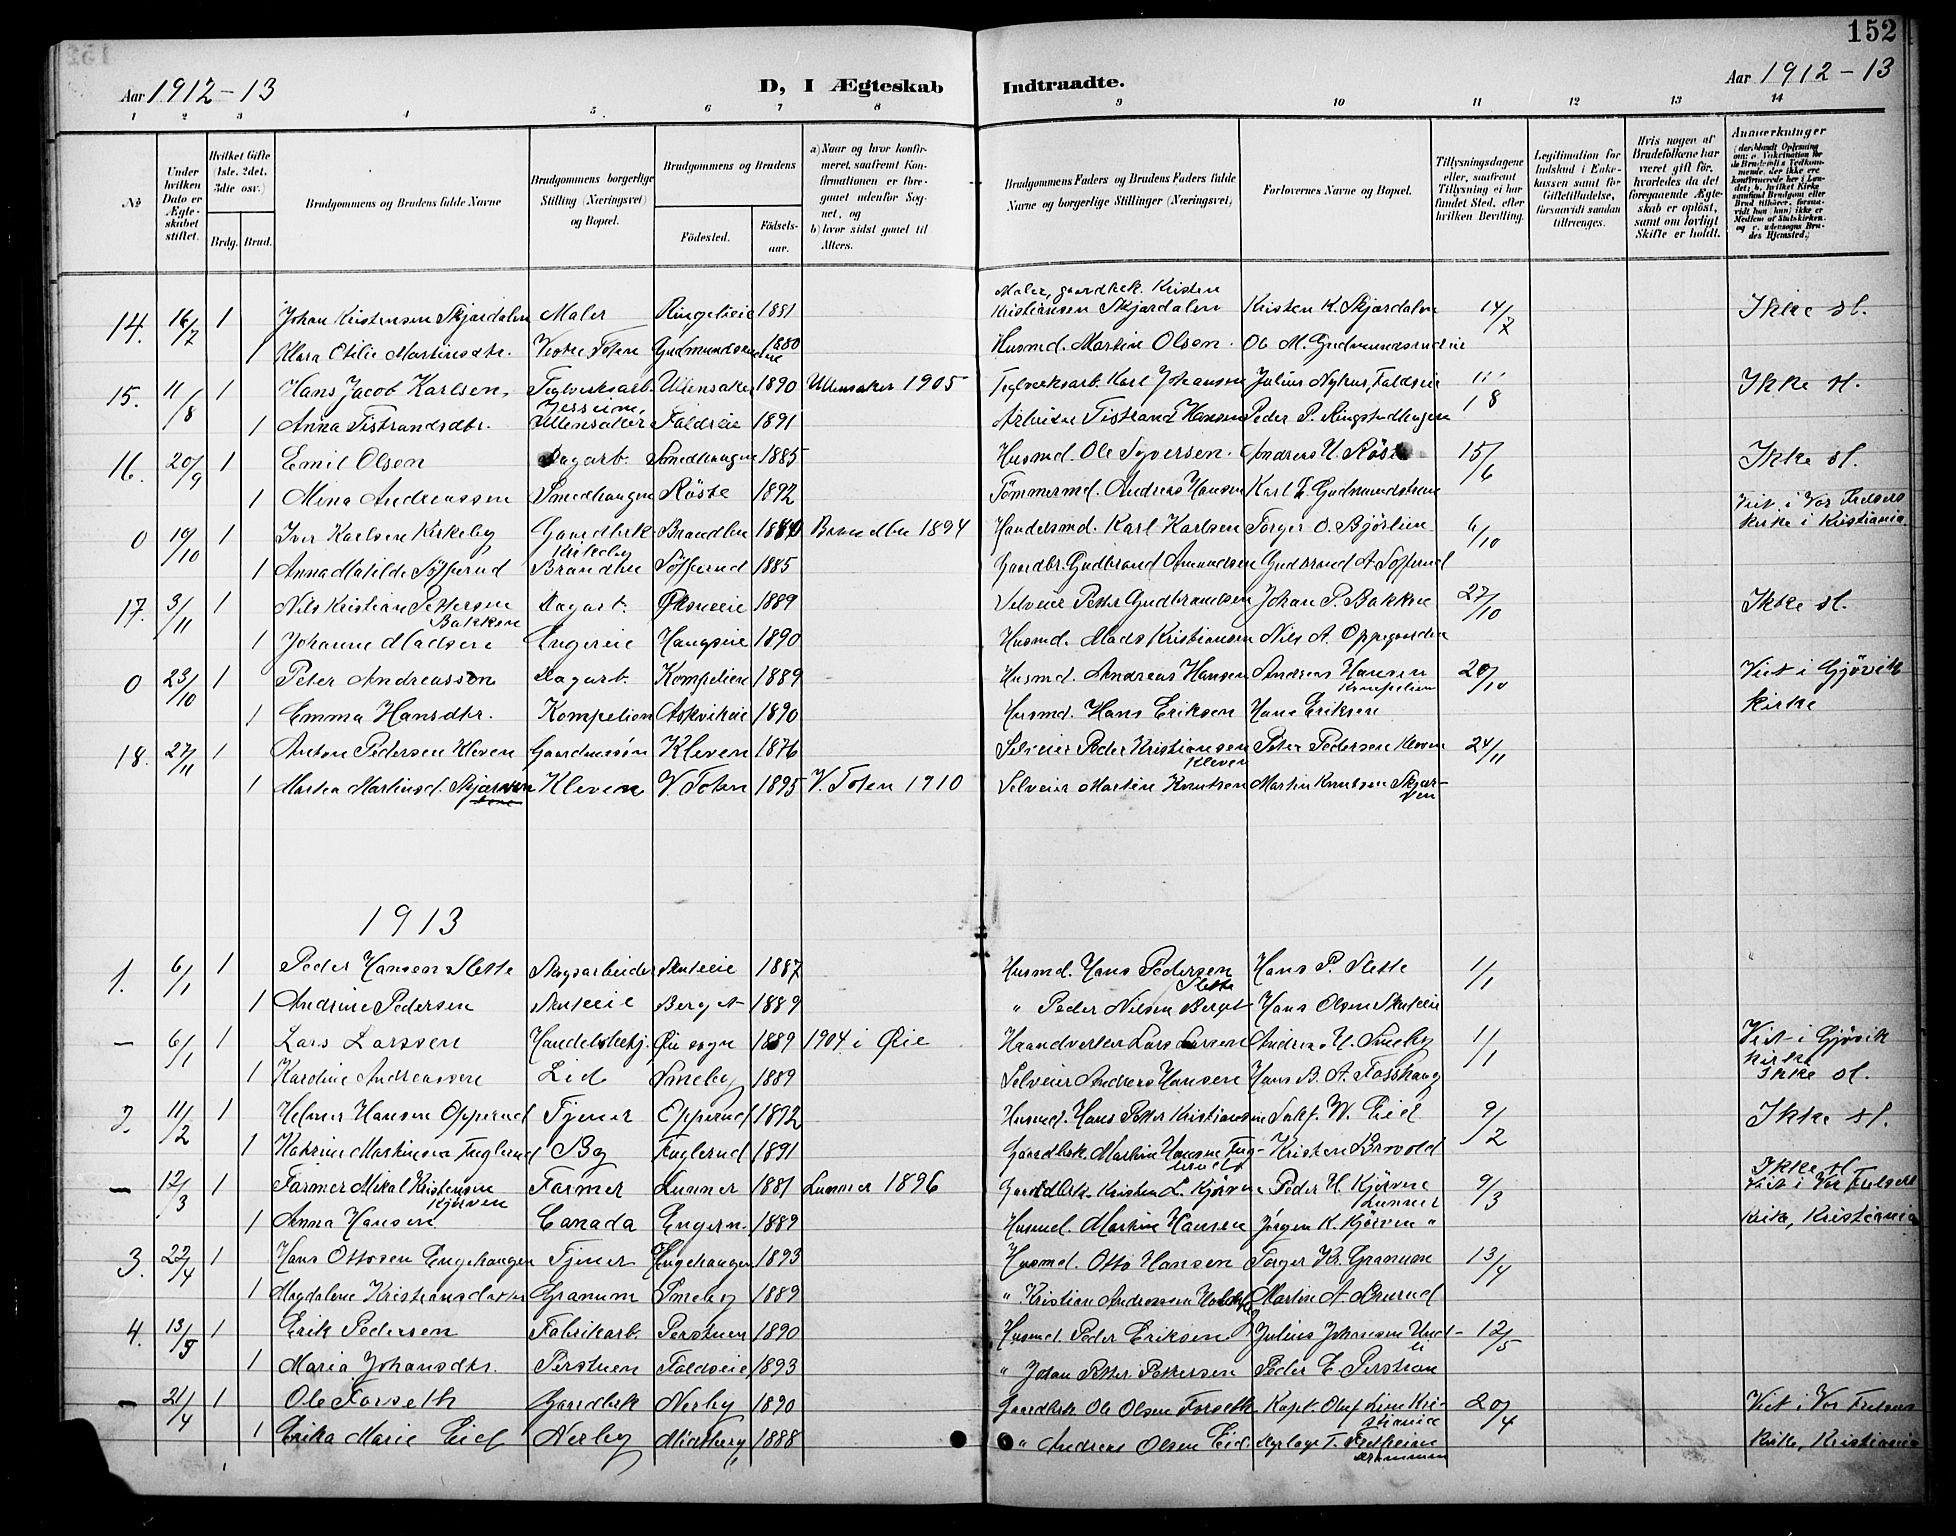 152
Aar 1912-13
D, I Ægteskab
Indtraadte.
Aar 1912-13
1 2 3 4 5 6 7 8 9 10 11 12 13 14
No
Under hvilken Dato er Ægteskabet stiftet.
Hvilket Gifte (1ste. 2det. 3die osv.)
Brdg. Brud.
Brudgommens og Brudens fulde Navne
Brudgommens borgerlige Stilling (Næringsvei) og Bopæl.
Brudgommens og Brudens
Fødested.
Fødsels-aar.
a) Naar og hvor konfirmeret, saafremt Konfirmationen er foregaaet udenfor Sognet, og
b) hvor sidst gaaet til Alters.
Brudgommens Faders og Brudens Faders fulde Navne og borgerlige Stillinger (Næringsvei)
Forlovernes Navne og Bopæl.
Tillysningsdagene eller, saafremt Tillysning ei har fundet Sted, efter hvilken Bevilling.
Legitimation for Indskud i Enkekassen samt for Giftetilladelse, forsaavidt saadan tiltrænges.
Hvis nogen af Brudefolkene har været gift før, hvorledes da det foregaaende Ægteskab er opløst, samt om lovligt Skifte er holdt.
Anmerkninger
14. 16/7 1 Johan Kristensen Skjærdalen Maler Ringelieie 1881 Maler, gaardbek. Kristen Kristiansen Skjærdalen Kristen K. Skjærdalen 14/7 Ikke sl.
1 Klara Otilie Martinsdtr. Vestre Toten Gudmundsrudeie 1880 Husmd. Martin Olsen Ole M. Gudmundsrudeie
15. 11/8 1 Hans Jacob Karlsen, Teglverksarb. Ullensaker 1890 Ullensaker 1905 Teglverksarb. Karl Johansen Julius Nyhus, Faldseie 8 Ikke sl.
1 Anna Tistrandsdtr. Jessheim, Ullensaker Faldseie 1891 Arbeider Tistrand Hansen Peder P. Ringstadhagen
16. 20/9 1 Emil Olsen Dagarb. Smedhaugen 1885 Husmd. Ole Syversen Andreas H. Röste 15/6 Ikke sl.
1 Mina Andreassen Smedhaugen Röste 1892 Tömmermd. Andreas Hansen Karl E. Gudmundshein
0 19/10 1 Iver Karlsen Kirkeby Gaardbek. Brandbu 1880 Brandbu 1894 Handelsmd. Karl Karlsen Torger O. Bjørlien 6/10 Viet i Vor Frelsers Kirke i Kristiania
1 Anna Matilde Söfferud Kirkeby Brandbu Söfferud 1885 Gaardbr. Gudbrand Amundsen Gudbrand A. Söfferud
17. 3/11 1 Nils Kristian Pettersen Bakken Dagarb. 1889 Selveier Petter Gudbrandsen Johan P. Bakken 27/10 Ikke sl.
1 Johanne Madsen Engereie Haugseie 1890 Husmd. Mads Kristiansen Nils A. Oppegaarden
0 23/10 1 Peter Andreassen Dagarb. Kompelien 1889 Husmd. Andreas Hansen Andreas Hansen Kompelien 20/10 Viet i Gjøvik
1 Emma Hansdtr. Kompelien Askvikeie 1890 Husmd. Hans Eriksen Hans Eriksen Kirke
18. 27/11 1 Anton Pedersen Kleven Gaardmanssön Kleven 1876 Selveier Peder Kristiansen Kleven Peter Pedersen Kleven 24/11
1 Martea Martinsd. Skjærven Kleven V. Toten 1895 V. Toten 1910 Selveier Martin Knutsen Martin Knutsen Skjærven
1913
1. 6/1 1 Peder Hansen Slette Skogsarbeider Stuteeie 1887 Husmd. Hans Pedersen Slette Hans P. Slette 1/1
1 Andrine Pedersen Stuteeie Berget 1889 " Peder Nilsen Berget Hans Olsen Stuteeie
— 6/1 1 Lars Larssen Handelsbetj. Øie sogn 1889 1904 i Øie Haandverker Lars Larsen Andreas H. Smeby 1/1 Viet i Gjøvik Kirke
1 Karoline Andreassen Lid Smeby 1889 Selveier Andreas Hansen Hans B. A. Fosshaug Ikke sl.
2. 11/2 1 Helmer Hansen Opperud Tjener Opperud 1892 Husmd. Hans Petter Kristiansen W. Eid 9/2 Ikke sl.
1 Katrine Martinsen Fuglerud By Fuglerud 1891 Gaardbek. Martin Hansen Fuglerud Kristen Brovold
— 12/3 1 Farmer Mikal Kristensen Kjørven Farmer Lunner 1881 Lunner 1896 Gaardbek. Kristen L. Kjørven Peder H. Kjørven Lunner 9/3 Ikke sl Viet i Vor Frelsers
1 Anna Hansen Canada Engern. 1889 Husmd. Martin Hansen Jørgen K. Kjörven " Kirke, Kristiania
3. 22/4 1 Hans Ottosen Engehaugen Tjener Engehaugen 1893 Husmd. Otto Hansen Torger Kr. Granum 13/4
1 Magdalene Kristiansdatter Granum Smeby 1889 " Kristian Andreassen Martin A. Brurud
4. 13/5 1 Erik Pedersen Fabrikarb. Perstuen 1890 Husmd. Peder Eriksen Julius Johansen Undli 12/5
1 Maria Johansdtr. Perstuen Faldseie 1893 " Johan Petter Pettersen Peder E. Perstuen
— 21/4 1 Ole Forseth Gaardbek Nerby 1890 Gaardbek Ole Olsen Forseth Kapt. Oluf Lien Kristiania 20/4 Viet i Vor Frelsers
1 Erika Marie Eid Nerby Midtberg 1888 " Andreas Olsen Eid. Drammen Kirke, Kristiania